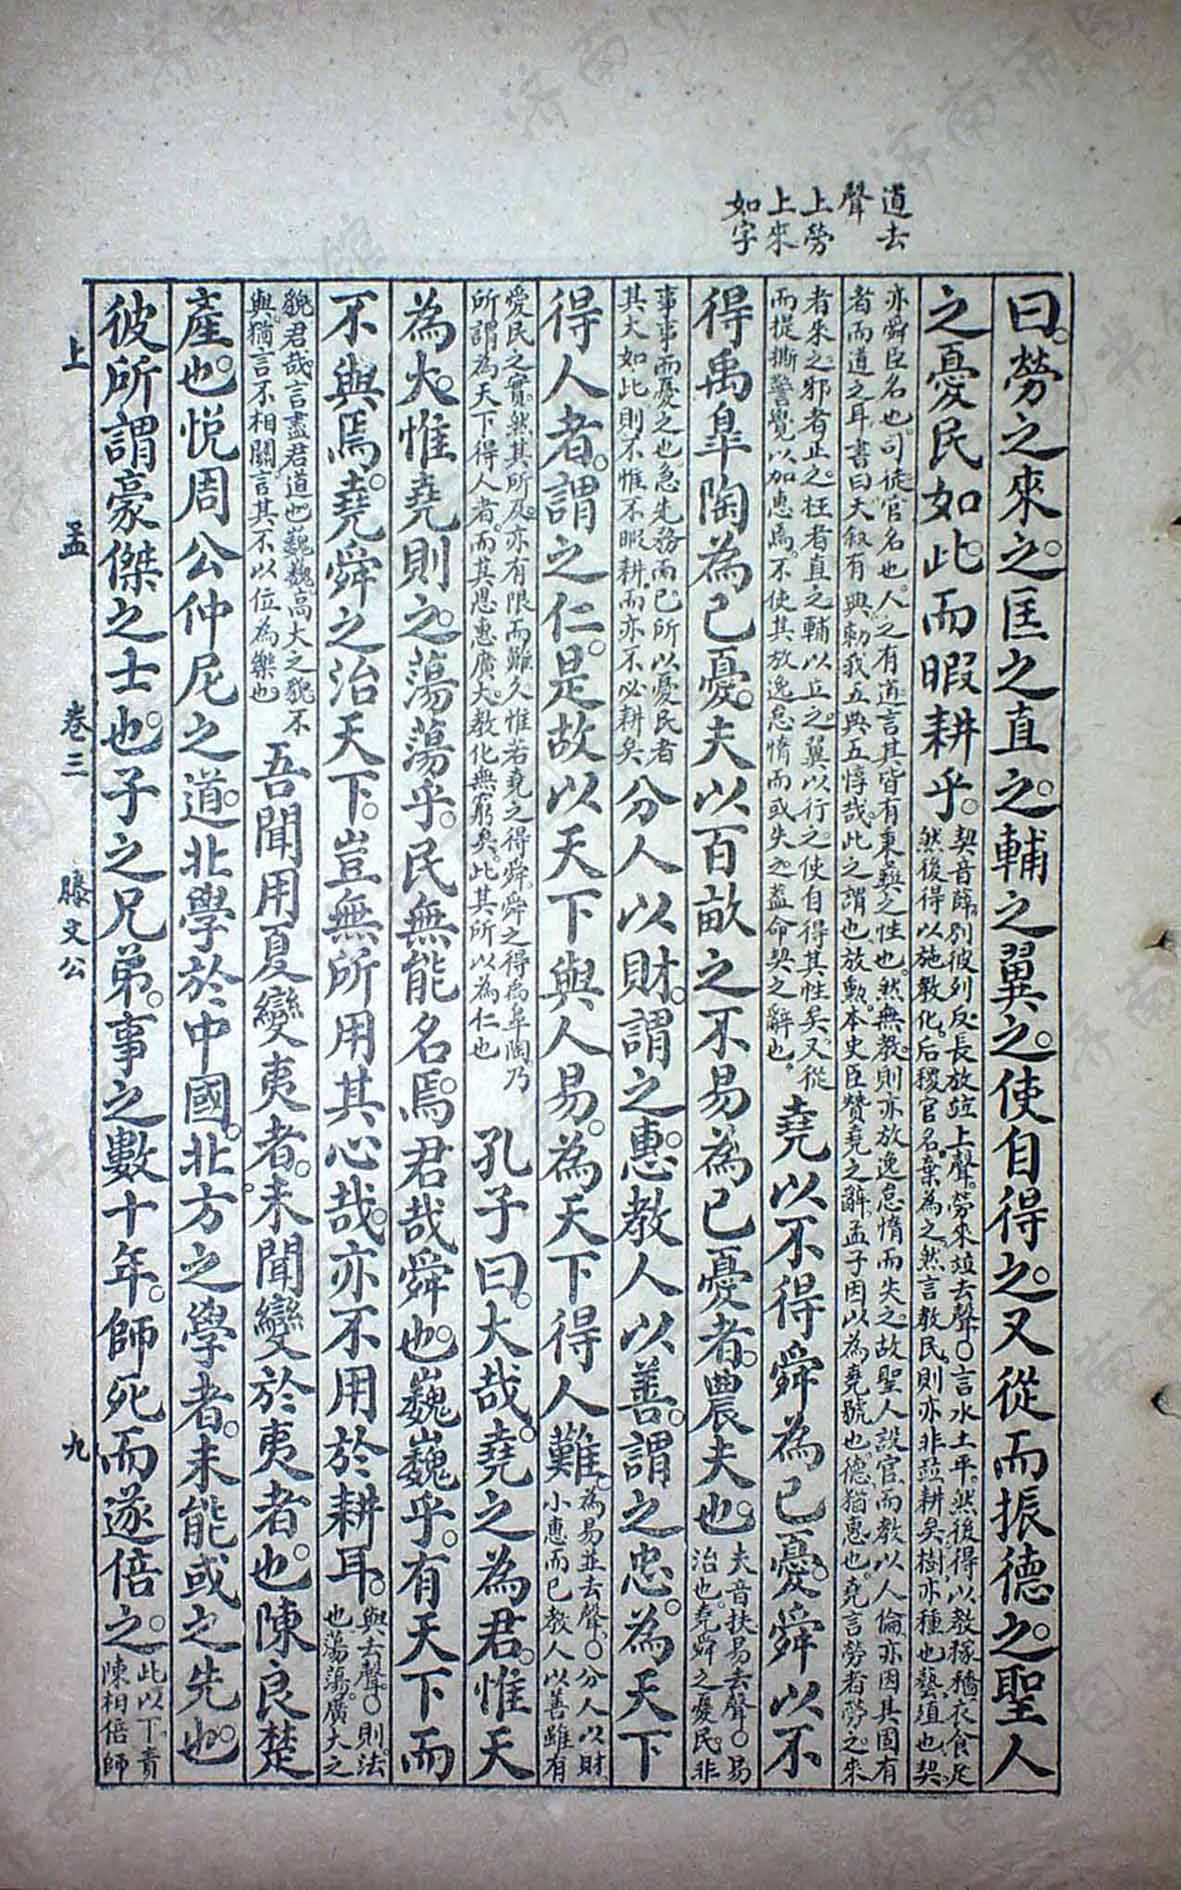 道去
聲
上勞
上來
如字
曰。勞之來之。匡之直之。輔之翼之。使自得之。又從而振德之。聖人
之憂民如此。而暇耕乎。
契音薛。別彼列反。長放竝上聲。勞來竝去聲。○言水土平。然後得以教稼穡。衣食足
然後得以施教化。后稷官名。棄為之。然言教民。則亦非竝耕矣。樹亦種也。藝殖也。契
亦舜臣名也。司徒官名也。人之有道。言其皆有秉彝之性也。然無教。則亦放逸怠惰而失之。故聖人設官而教以人倫。亦因其固有
者而道之耳。書曰天叙有典。勑我五典五惇哉。此之謂也。放勳。本史臣贊堯之辭。孟子因以為堯號也。德猶惠也。堯言勞者勞之。來
者來之。邪者正之。枉者直之。輔以立之。翼以行之。使自得其性矣。又從
而提撕警覺以加惠焉。不使其放逸怠惰而或失之。蓋命契之辭也。
堯以不得舜為己憂。舜以不
得禹皐陶為己憂。夫以百畝之不易為己憂者。農夫也。
夫音扶。易去聲。○易
治也。堯舜之憂民。非
事事而憂之也。急先務而已。所以憂民者
其大如此。則不惟不暇耕。而亦不必耕矣
分人以財。謂之惠。教人以善。謂之忠。為天下
得人者。謂之仁。是故以天下與人易。為天下得人難。
為易並去聲。○分人以財
小惠而已。教人以善。雖有
愛民之實。然其所及亦有限而難久。惟若堯之得舜。舜之得禹皐陶。乃
所謂為天下得人者。而其恩惠廣大。教化無窮矣。此其所以為仁也
孔子曰。大哉。堯之為君。惟天
為大。惟堯則之。蕩蕩乎。民無能名焉。君哉舜也。巍巍乎。有天下而
不與焉。堯舜之治天下。豈無所用其心哉。亦不用於耕耳。
與去聲。○則。法
也。蕩蕩。廣大之
貌。君哉。言盡君道也。巍巍。高大之貌。不
與。猶言不相關。言其不以位為樂也
吾聞用夏變夷者。未聞變於夷者也。陳良楚
產也。悅周公仲尼之道。北學於中國。北方之學者。未能或之先也。
彼所謂豪傑之士也。子之兄弟。事之數十年。師死而遂倍之。
此以下。責
陳相倍師
上
孟
卷三
滕文公
九